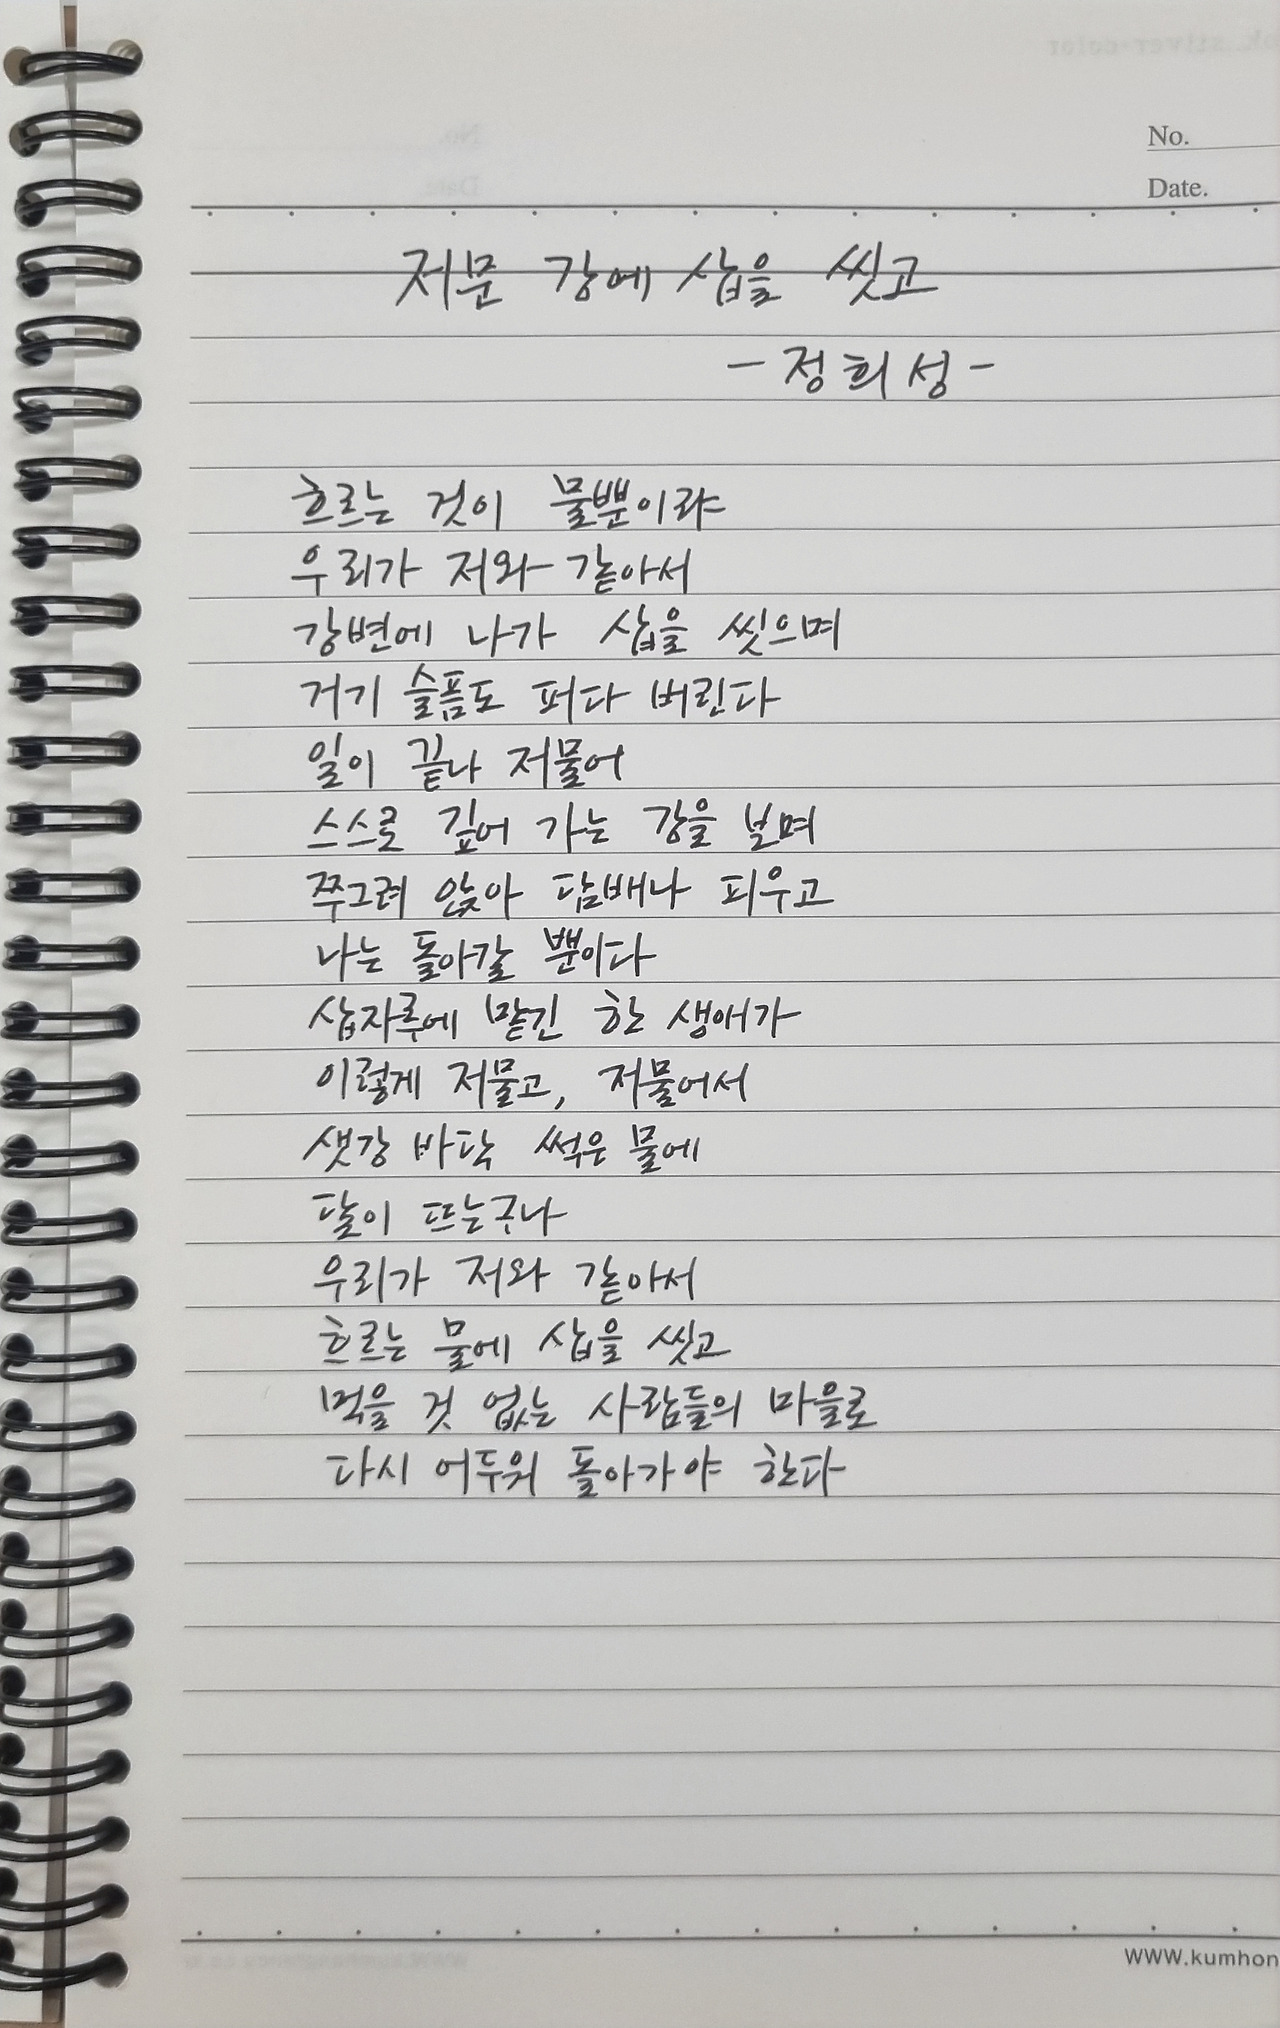 No.
Date.
저문 강에 삽을 씻고
- 정희성 -
흐르는 것이 물뿐이랴
우리가 저와 같아서
강변에 나가 삽을 씻으며
거기 슬픔도 퍼다 버린다
일이 끝나 저물어
스스로 깊어 가는 강을 보며
쭈그려 앉아 담배나 피우고
나는 돌아갈 뿐이다
삽자루에 맡긴 한 생애가
이렇게 저물고, 저물어서
샛강 바닥 썩은 물에
달이 뜨는구나
우리가 저와 같아서
흐르는 물에 삽을 씻고
먹을 것 없는 사람들의 마을로
다시 어두워 돌아가야 한다
WWW.kumhon